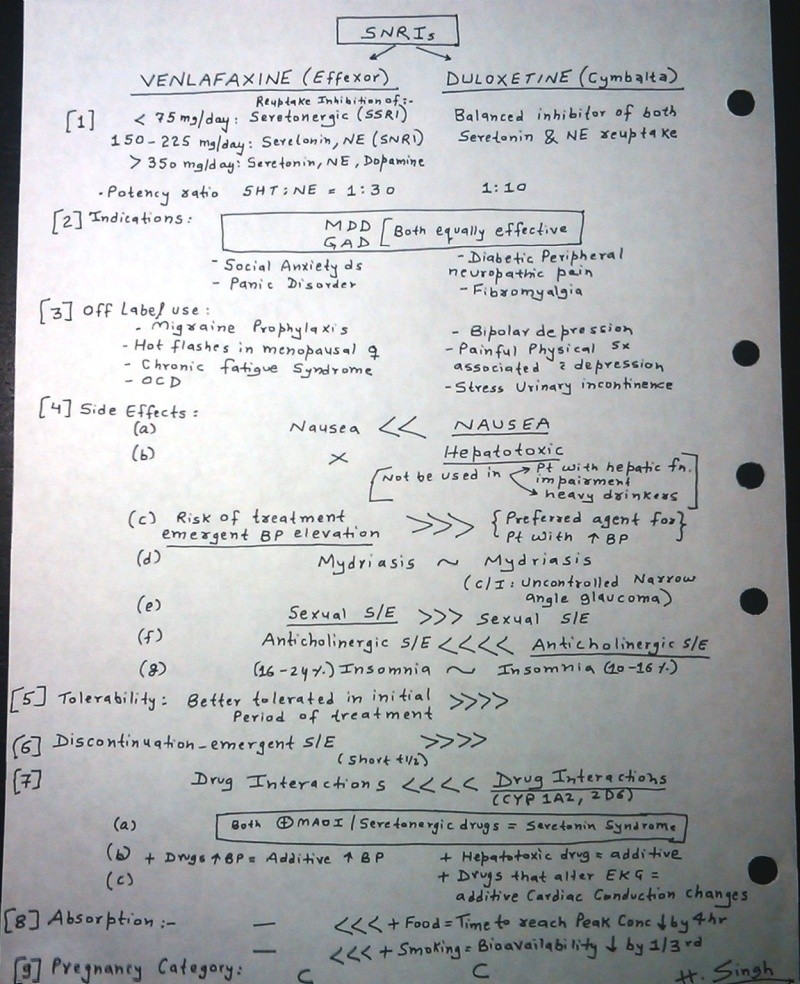 SNRIs
VENLAFAXINE (Effexor) DULOXETINE (Cymbalta)
Reuptake Inhibition of:-
[1] < 75 mg/day: Seretonergic (SSRI) Balanced inhibitor of both
150-225 mg/day: Serotonin, NE (SNRI) Seretonin & NE reuptake
> 350 mg/day: Seretonin, NE, Dopamine
- Potency ratio 5HT:NE = 1:30 1:10
[2] Indications: MDD [Both equally effective
GAD
- Social Anxiety ds - Diabetic Peripheral
- Panic Disorder neuropathic pain
- Fibromyalgia
[3] Off Label use:
- Migraine Prophylaxis - Bipolar depression
- Hot flashes in menopausal ♀ - Painful Physical Sx
- Chronic fatigue Syndrome associated c̄ depression
- OCD - Stress Urinary incontinence
[4] Side Effects:
(a) Nausea << NAUSEA
(b) × Hepatotoxic
[Not be used in → Pt with hepatic fn.
impairment
→ heavy drinkers]
(c) Risk of treatment >>> {Preferred agent for}
emergent BP elevation Pt with ↑ BP
(d) Mydriasis ~ Mydriasis
(C/I: Uncontrolled Narrow
angle glaucoma)
(e) Sexual S/E >>> Sexual S/E
(f) Anticholinergic S/E <<<< Anticholinergic S/E
(g) (16-24%) Insomnia ~ Insomnia (10-16%)
[5] Tolerability: Better tolerated in initial >>>>
Period of treatment
[6] Discontinuation-emergent S/E >>>>
(Short t1/2)
[7] Drug Interactions <<<< Drug Interactions
(CYP 1A2, 2D6)
(a) Both ⊕ MAOI / Seretonergic drugs = Seretonin Syndrome
(b) + Drugs ↑ BP = Additive ↑ BP + Hepatotoxic drug = additive
(c) + Drugs that alter EKG =
additive Cardiac Conduction changes
[8] Absorption:- — <<< + Food = Time to reach Peak Conc ↓ by 4hr
— <<< + Smoking = Bioavailability ↓ by 1/3rd
[9] Pregnancy Category: C C H. Singh